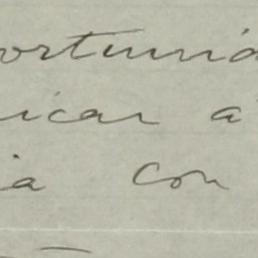 ortunid
icar a
ia con